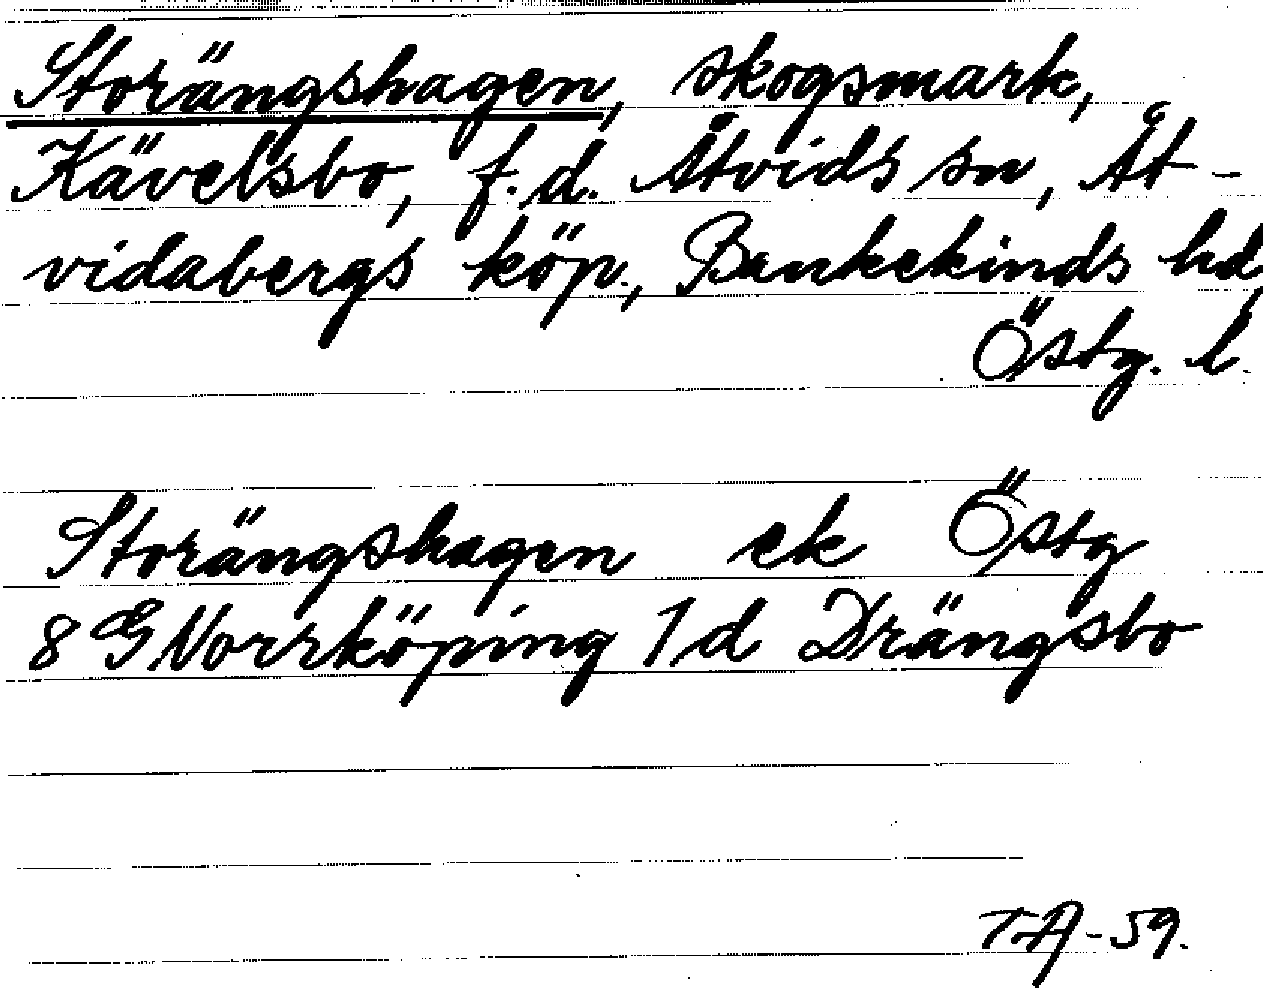 Storängshagen, skogsmark,
Kävelsbo, f.d. Åtvids sn, Åt-
vidabergs köp., Bankekinds hd,
Östg. l.
Storängshagen ek Östg
8 G Norrköping 1 d Drängsbo
TA-59.